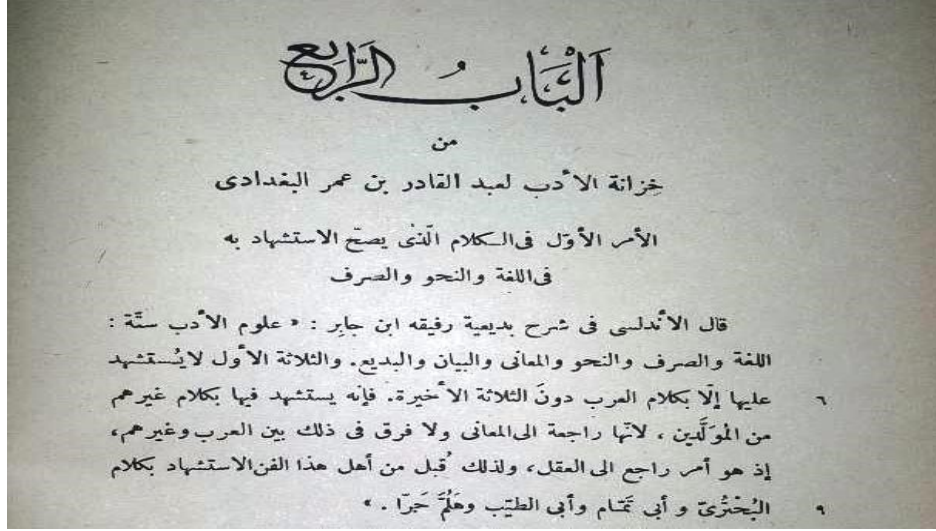 اَلْبَابُ الرَّابِعُ
من
خزانة الأدب لعبد القادر بن عمر البغدادى
الأمر الأوّل فى الكلام الّذى يصحّ الاستشهاد به
فى اللغة والنحو والصرف
قال الأندلسى فى شرح بديعية رفيقه ابن جابر : « علوم الأدب ستّة :
اللغة والصرف والنحو والمعانى والبيان والبديع. والثلاثة الأول لا يُستشهد
٦ عليها إلّا بكلام العرب دونَ الثلاثة الأخيرة. فإنه يستشهد فيها بكلام غيرهم
من المولَّدين ، لأنّها راجعة الى المعانى ولا فرق فى ذلك بين العرب وغيرهم،
إذ هو أمر راجع الى العقل، ولذلك قُبل من أهل هذا الفن الاستشهاد بكلام
٩ البُحْتُرىّ و أبى تَمّام وأبى الطيّب وهَلُمَّ جَرّا . »